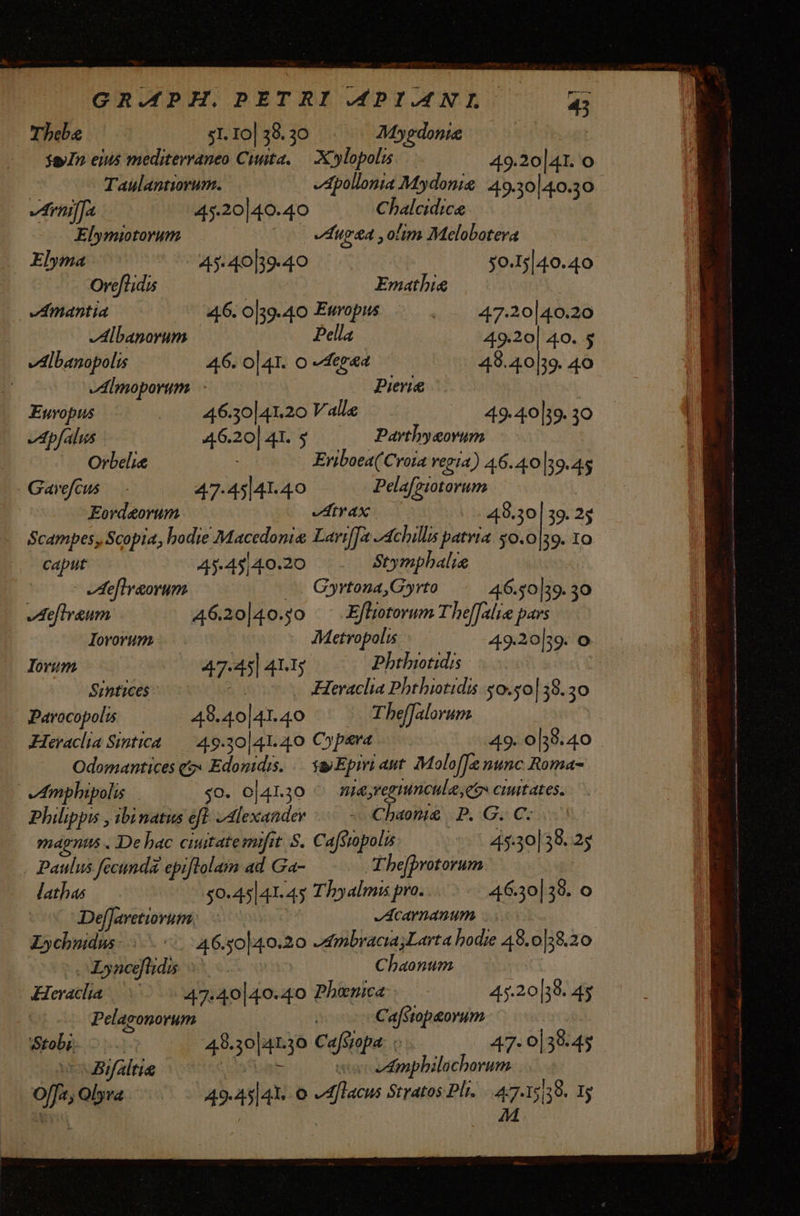 GRAPH. PETRI APIANI. 43
Thebæ 51.10|38.30
In eius mediterraneo Ciuita.
Taulantiorum.
Arnissa 45.20|40.40
Elymiotorum
Elyma 45.40|39.40
Orestidis
Amantia 46. 0|39.40
Albanorum
Albanopolis 46. 0|41. 0
Almoporum
Europus 46.30|41.20
Apsalus 46.20|41. 5
Orbeliæ
Garescus 47.45|41.40
Eordæorum
Scampes, Scopia, hodie Macedoniæ
caput 45.45|40.20
Aestræorum
Aestræum 46.20|40.50
Iororum
Iorum 47.45|41.15
Sintices
Parocopolis 48.40|41.40
Heraclia Sintica 49.30|41.40
Odomantices & Edonidis.
Amphipolis 50. 0|41.30
Philippis, ibi natus est Alexander
magnus. De hac ciuitate misit S.
Paulus secundã epistolam ad Ga-
lathas 50.45|41.45
Dessaretiorum
Lychnidus 46.50|40.20
Lyncestidis
Heraclia 47.40|40.40
Pelagonorum
Stobi 48.30|41.30
Bisaltiæ
Ossa, Olyra 49.45|41. 0
Mygdoniæ
Xylopolis 49.20|41. 0
Apollonia Mydoniæ 49.30|40.30
Chalcidicæ
Augæa, olim Melobotera
50.15|40.40
Emathiæ
Europus 47.20|40.20
Pella 49.20|40. 5
Aegæa 48.40|39. 40
Pieriæ
Vallæ 49.40|39. 30
Parthyæorum
Eriboea(Croia regia) 46.40|39.45
Pelasgiotorum
Atrax 48.30|39. 25
Larissa Achillis patria 50.0|39. 10
Stymphaliæ
Gyrtona, Gyrto 46.50|39. 30
Estiotorum Thessaliæ pars
Metropolis 49.20|39. 0
Phthiotidis
Heraclia Phthiotidis 50.50|38.30
Thessalorum
Cypæra 49. 0|38.40
Epiri aut Molossæ nunc Roma-
niæ, regiunculæ, & ciuitates.
Chaoniæ P. G. C:
Cassiopolis 45.30|38. 25
Thesprotorum
Thyalmis pro. 46.30|38. 0
Acarnanum
Ambracia, Larta hodie 48.0|38.20
Chaonum
Phœnica 45.20|38. 45
Cassiopæorum
Cassiopa 47. 0|38.45
Amphilochorum
Astacus Stratos Pli. 47.15|38. 15
M